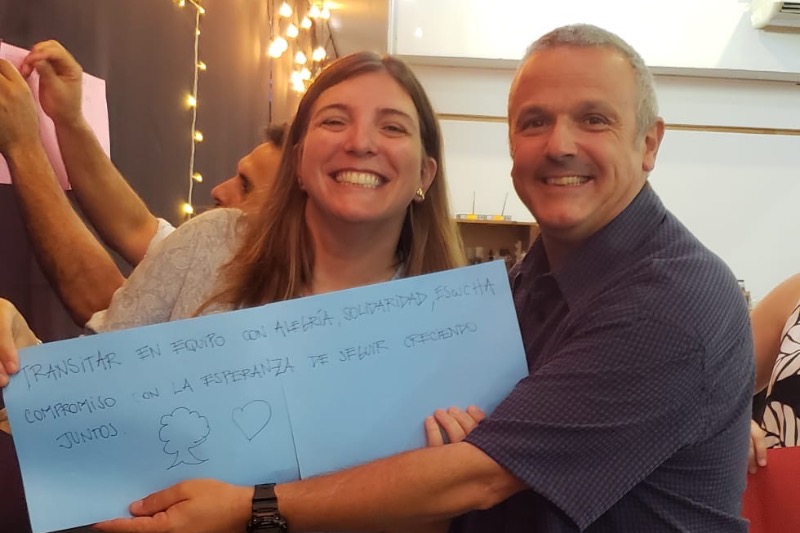 TRANSITAR EN EQUIPO CON ALEGRÍA, SOLIDARIDAD, ESCUCHA
COMPROMISO CON LA ESPERANZA DE SEGUIR CRECIENDO
JUNTOS.